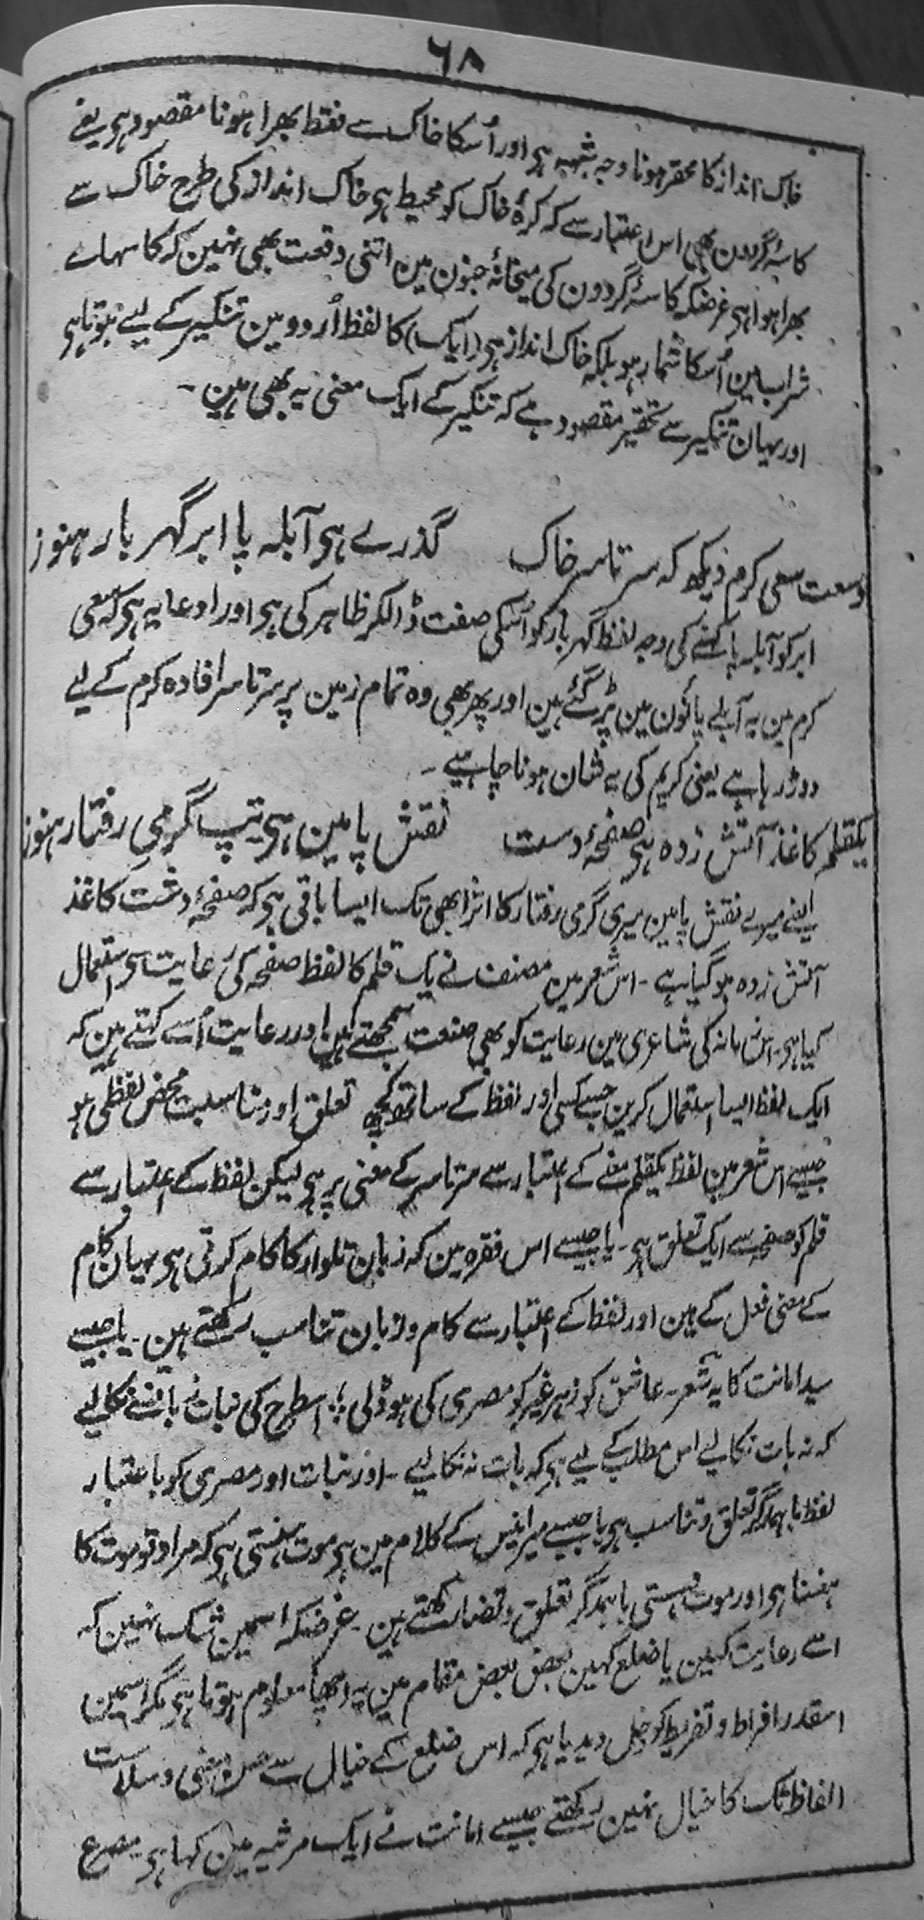 ۶۸
خاک انداز کا محقر ہونا وجہ شبہہ ہی اور اُسکا خاک سے فقط بھرا ہونا مقصود ہی یعنے
کاسۂ گردون بھی اس اعتبار سے کہ کرۂ خاک کو محیط ہی خاک انداز کی طرح خاک سے
بھرا ہوا ہی غرضکہ کاسۂ گردون کی میخانۂ جنون مین اتنی وقعت بھی نہین کہ کاسہاے
شراب مین اُسکا شمار ہو بلکہ خاک انداز ہی (ایک) کا لفظ اُردو مین تنکیر کے لیے ہوتا ہی
اور یہان تنکیر سے تحقیر مقصود ہے کہ تنکیر کے ایک معنی یہ بھی ہین ۔
وسعت سعی کرم دیکھ کہ سر تا سر خاک گذرے ہی آبلہ پا ابر گہر بار ہنوز
ابر کو آبلہ پا کہنے کی وجہ لفظ گہر بار کو اُسکی صفت ڈالکر ظاہر کی ہی اور ادعا یہ ہی کہ سعی
کرم مین یہ آبلے پائون مین پڑ گئے ہین اور پھر بھی وہ تمام زمین پر سرتاسر افادہ کرم کے لیے
دوڑ رہا ہے یعنی کریم کی یہ شان ہونا چاہیے ۔
یکقلم کاغذ آتش زدہ ہی صفحۂ دست نقش پا مین ہی تپ گرمی رفتار ہنوز
یعنے میرے نقش پا مین میری گرمی رفتار کا اثر ابھی تک ایسا باقی ہی کہ صفحۂ دشت کاغذ
آتش زدہ ہو گیا ہے ۔ اس شعر مین مصنف نے یک قلم کا لفظ صفحہ کی رعایت سی استعمال
کیا ہی ۔ اس زمانہ کی شاعری مین رعایت کو بھی صنعت سمجھتے ہین اور رعایت اُسے کہتے ہین کہ
ایک لفظ ایسا استعمال کرین جسے کسی اور لفظ کے ساتھ کچھ تعلق اور مناسبت محض لفظی ہو
جیسے اس شعر مین لفظ یکقلم معنے کے اعتبار سے سرتاسر کے معنی پر ہی لیکن لفظ کے اعتبار سے
قلم کو صفحہ سے ایک تعلق ہی ۔ یا جیسے اس فقرہ مین کہ زبان تلوار کا کام کرتی ہی یہان کام
کے معنی فعل کے ہین اور لفظ کے اعتبار سے کام و زبان تناسب رکھتے ہین ۔ یا جیسے
سید امانت کا یہ شعر ۔ عاشق کو زہر غیر کو مصری کی ہو ڈلی ؛ اسطرح کی نبات نہ نکالیے
کہ نہ بات نکالیے اس مطلب کے لیے ہی کہ بات نہ نکالیے ۔ اور نبات اور مصری کو با عتبار
لفظ باہمدگر تعلق و تناسب ہی یا جیسے میر انیس کے کلام مین ہی موت ہنستی ہی کہ مراد تو موت کا
ہنسنا ہی اور موت ہستی باہمدگر تعلق و تضاد رکھتے ہین ۔ غرضکہ اسمین شک نہین کہ
اسے رعایت کہین یا ضلع کہین بعض بعض مقام مین یہ اچھا معلوم ہوتا ہی مگر اسمین
اسقدر افراط و تفریط کو دخل دیدیا ہی کہ اس ضلع کے خیال سے حسن معنی و سلاست
الفاظ تک کا خیال نہین رکھتے جیسے امانت نے ایک مرثیہ مین کہا ہی مصرع